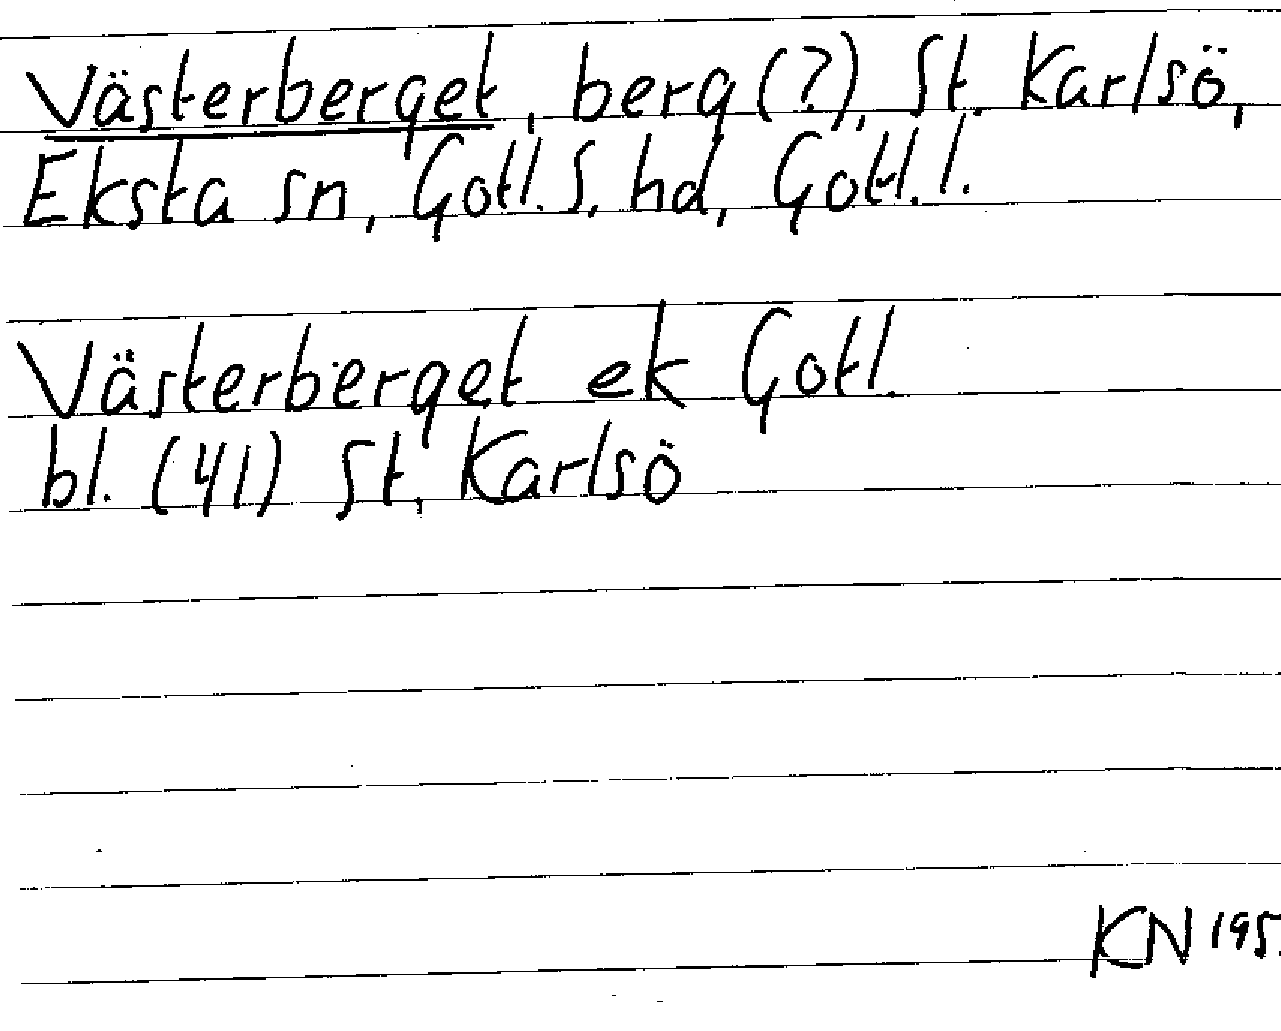 Västerberget, berg (?), St. Karlsö,
Eksta sn, Gotl. S. hd, Gotl. l.
Västerberget ek Gotl.
bl. (41) St. Karlsö
KN 195